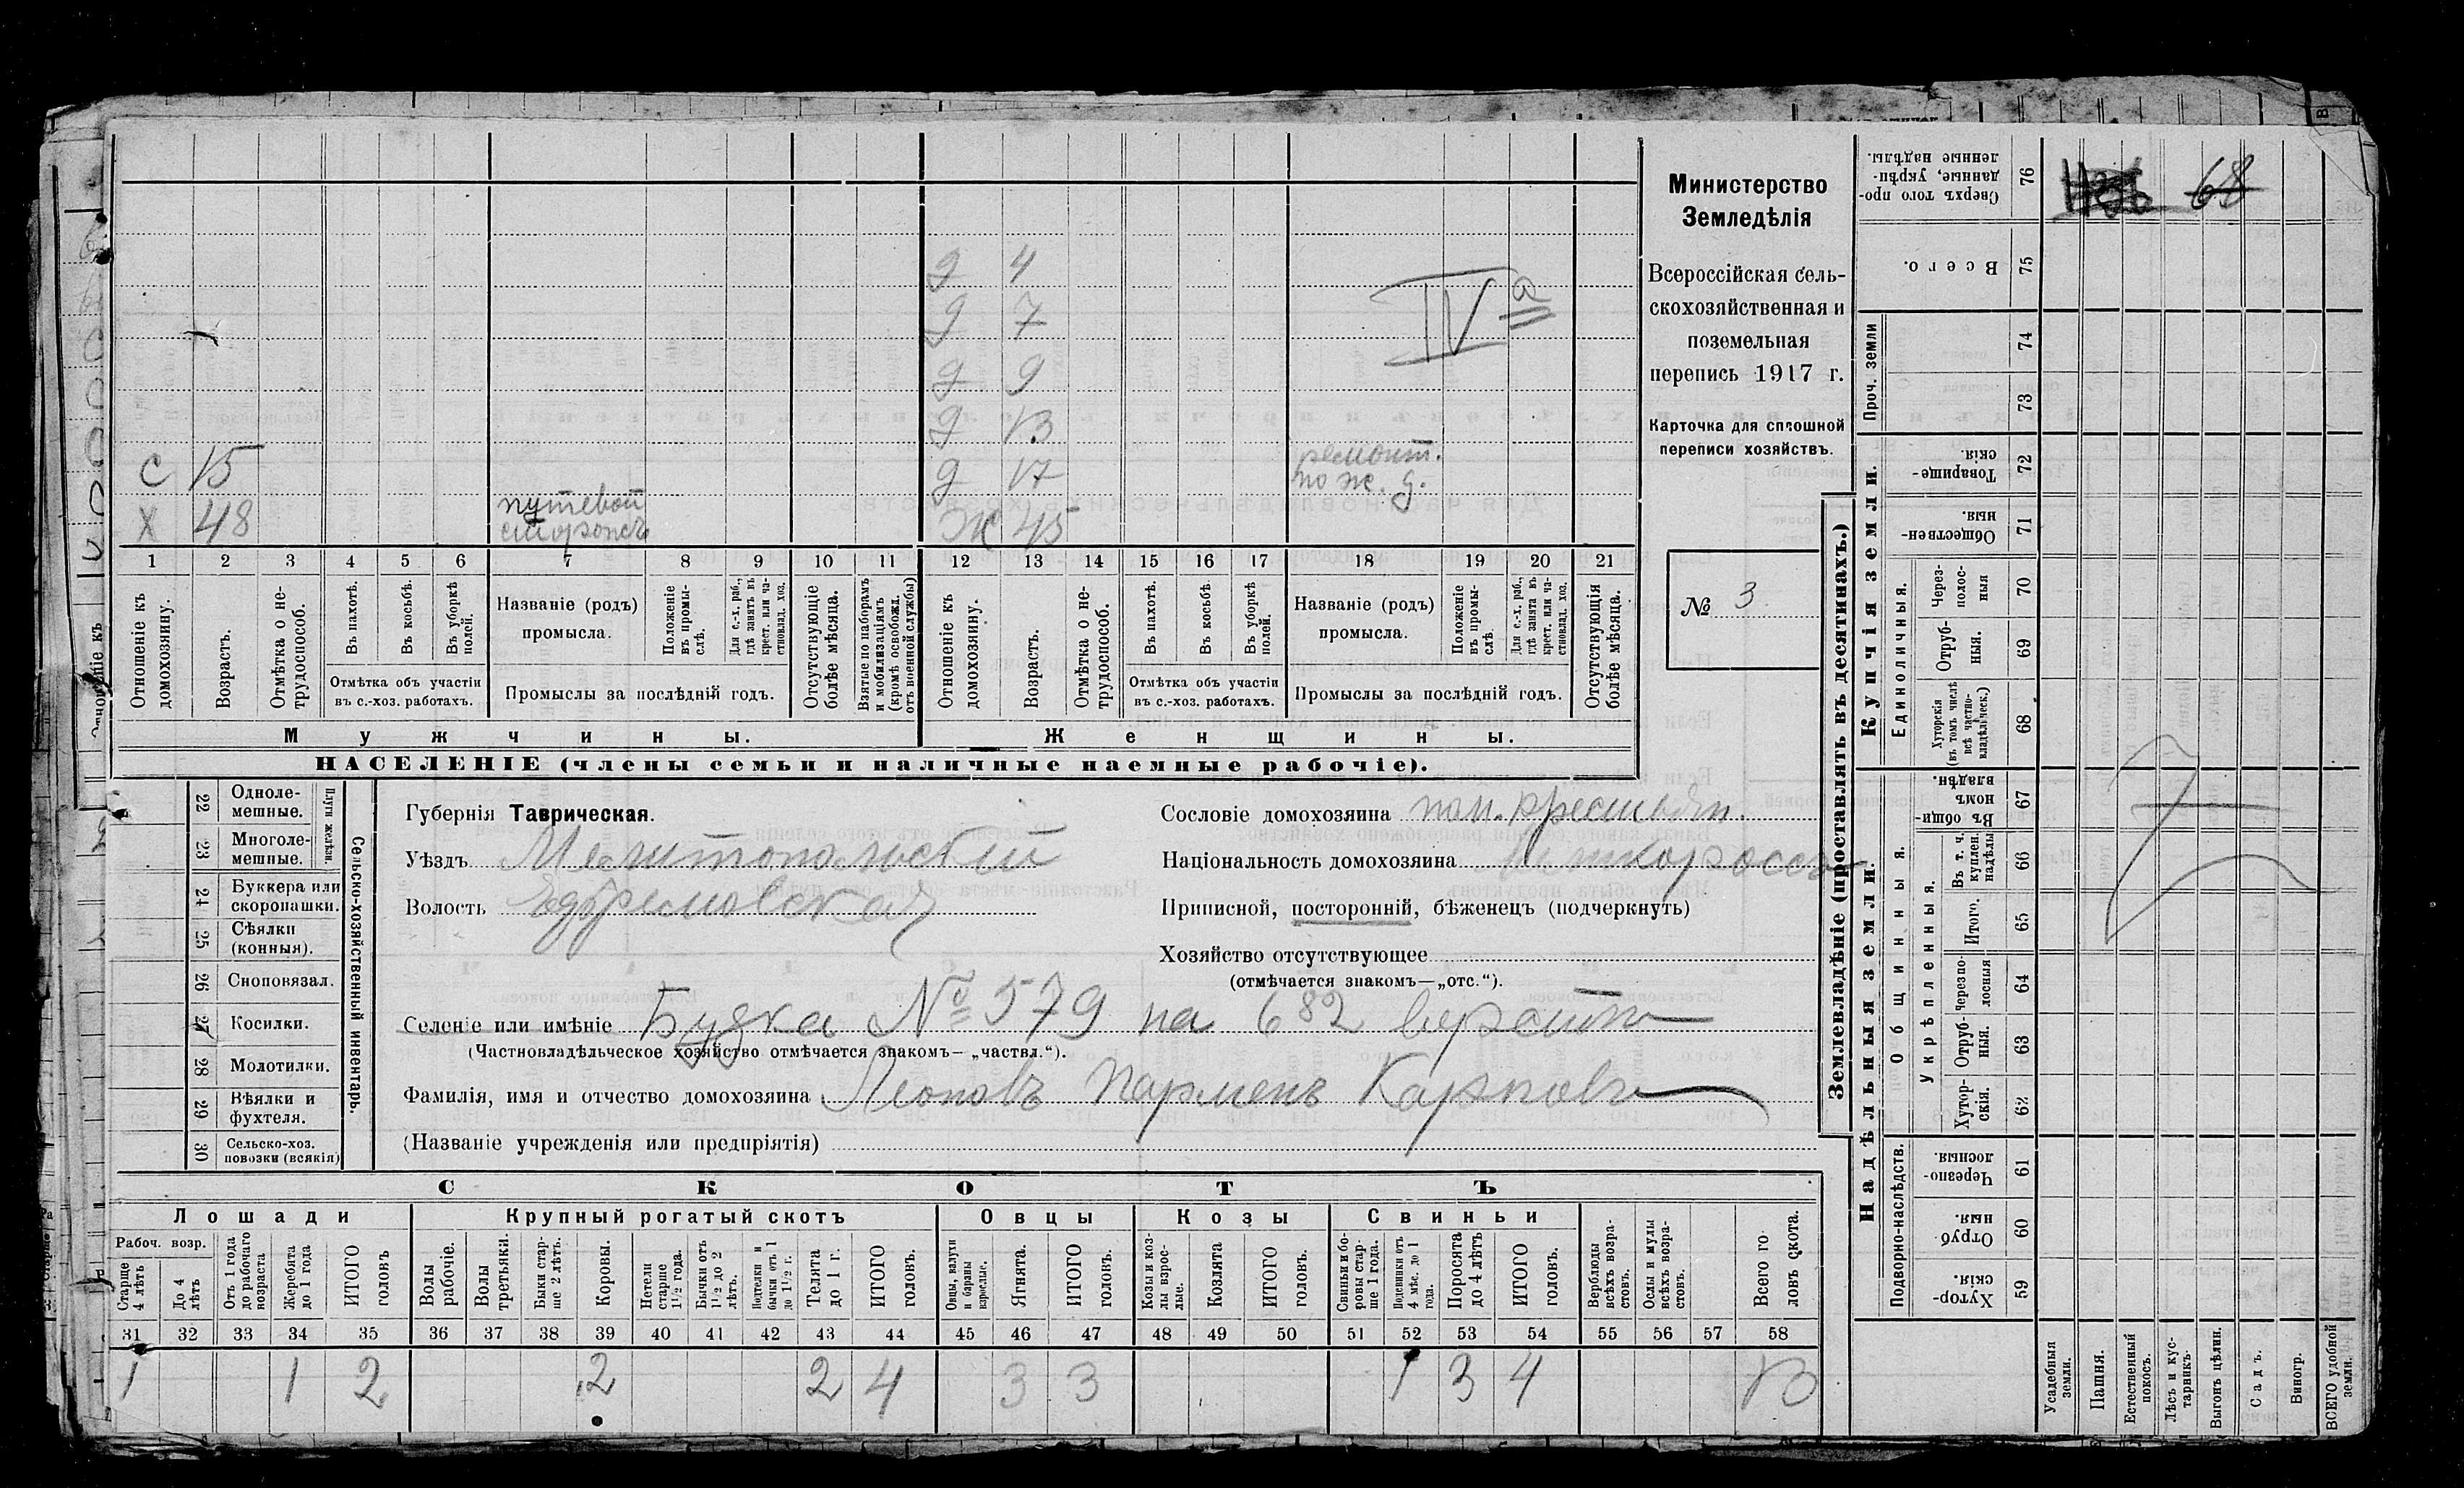 Министерство
Земледѣлія
Всероссійская сель-
скохозяйственная и
поземельная
перепись 1917 г.
Карточка для сплошной
переписи хозяйствъ.
№ 3
д 4
д 7
д 9
д 13
С 15 д 17 ремонт. по ж. д.
Х 48 путевой сторожъ Ж 45
IV
1 2 3 4 5 6 7 8 9 10 11 12 13 14 15 16 17 18 19 20 21
Отношеніе къ домохозяину.
Возрастъ.
Отмѣтка о не-трудоспособ.
Въ пахотѣ.
Въ косьбѣ.
Въ уборкѣ полей.
Отмѣтка объ участіи въ с.-хоз. работахъ.
Названіе (родъ) промысла.
Положеніе въ промы-слѣ.
Для с.-х. раб., гдѣ занятъ въ крест. или ча-стновлад. хоз.
Промыслы за послѣдній годъ.
Отсутствующіе болѣе мѣсяца.
Взятые по наборамъ и мобилизаціямъ (кромѣ освобожд. отъ военной службы)
Отношеніе къ домохозяину.
Возрастъ.
Отмѣтка о не-трудоспособ.
Въ пахотѣ.
Въ косьбѣ.
Въ уборкѣ полей.
Отмѣтка объ участіи въ с.-хоз. работахъ.
Названіе (родъ) промысла.
Положеніе въ промы-слѣ.
Для с.-х. раб., гдѣ занята въ крест. или ча-стновлад. хоз.
Промыслы за послѣдній годъ.
Отсутствующія болѣе мѣсяца.
Мужчины. Женщины.
НАСЕЛЕНІЕ (члены семьи и наличные наемные рабочіе).
Сельско-хозяйственный инвентарь.
Плуги желѣзн
22 Одноле-мешные.
23 Многоле-мешные.
24 Буккера или скоропашки.
25 Сѣялки (конныя).
26 Сноповязал.
27 Косилки.
28 Молотилки.
29 Вѣялки и фухтеля.
30 Сельско-хоз. повозки (всякія)
Губернія Таврическая.
Уѣздъ Мелитопольскій
Волость Ефремовская
Сословіе домохозяина крестьян.
Національность домохозяина великороссъ
Приписной, посторонній, бѣженецъ (подчеркнуть)
Хозяйство отсутствующее
(отмѣчается знакомъ—„отс.“).
Селеніе или имѣніе Будка № 579 на 682 верстѣ
(Частновладѣльческое хозяйство отмѣчается знакомъ— „частвл.“).
Фамилія, имя и отчество домохозяина Леоновъ Парменъ Карповъ
(Названіе учрежденія или предпріятія)
СКОТЪ
Лошади Крупный рогатый скотъ Овцы Козы Свиньи
Рабоч. возр.
Старше 4 лѣтъ
До 4 лѣтъ
Отъ 1 года до рабочаго возраста
Жеребята до 1 года
ИТОГО головъ
Волы рабочіе.
Волы третьяки.
Быки стар-ше 2 лѣтъ.
Коровы.
Нетели старше 1 1/2 года.
Бычки отъ 1 1/2 до 2 лѣтъ.
Подтелки и бычки отъ 1 до 1 1/2 г.
Телята до 1 г.
ИТОГО головъ.
Овцы, валухи и бараны взрослые.
Ягнята.
ИТОГО головъ.
Козы и коз-лы взрос-лые.
Козлята
ИТОГО головъ.
Свиньи и бо-ровы стар-ше 1 года.
Подсвинки отъ 4 мѣс. до 1 года.
Поросята до 4 лѣтъ
ИТОГО головъ.
Верблюды всѣхъ возра-стовъ.
Ослы и мулы всѣхъ возра-стовъ.
Всего го-ловъ скота.
31 32 33 34 35 36 37 38 39 40 41 42 43 44 45 46 47 48 49 50 51 52 53 54 55 56 57 58
1 1 2 2 2 4 3 3 1 3 4
Землевладѣніе (проставлять въ десятинахъ.)
Купчія земли.
Надѣльныя земли.
76 Сверхъ того про-данные, укрѣп-ленные надѣлы.
68
75 Всего.
Проч. земли
74
73
72 Товарище-скія.
71 Обществен-ныя.
Единоличныя.
70 Через-полос-ныя
69 Отруб-ныя.
68 Хуторскія (въ томъ числѣ всѣ частно-владѣльческ.)
Общинныя.
67 Въ общи-номъ владѣн.
Укрѣпленныя.
66 Въ т. ч. куплен. надѣлы
65 Итого.
64 Черезпо-лосныя
63 Отруб-ныя.
62 Хутор-скія.
Подворно-наслѣдств.
61 Черезпо-лосныя.
60 Отруб-ныя.
59 Хутор-скія.
Усадебныя земли.
Пашня.
Естественный покосъ.
Лѣсъ и кус-тарникъ.
Выгонъ цѣлин.
Садъ.
Виногр.
ВСЕГО удобной земли.